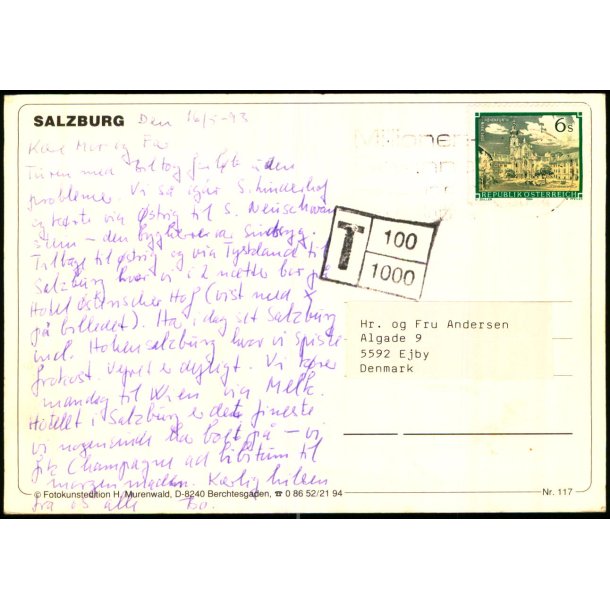 SALZBURG Den 16/5-93
Kære Mor og Far
Turen med biltog forløb uden
problemer. Vi så igår S. Linderhof
og kørte via Østrig til S. Neuschwan
stein – den bygherre var sindssyg.
Tilbage til Østrig og via Tyskland til
Salzburg hvor vi i 2 nætter bor på
Hotel Österreichischer Hof (vist med X
på billedet). Ha i dag set Salzburg
incl. Hohensalzburg hvor vi spiste
frokost. Vejret er dejligt. Vi kører
mandag til Wien via Melk.
Hotellet i Salzburg er det fineste
vi nogensinde har boet på – vi
fik Champagne ad libitum til
morgenmaden. Kærlig hilsen
fra os alle Bo.
© Fotokunstedition H. Murenwald, D-8240 Berchtesgaden, ☎ 0 86 52/21 94
Nr. 117
Millionen
6 S
REPUBLIK ÖSTERREICH
T 100
1000
Hr. og Fru Andersen
Algade 9
5592 Ejby
Denmark